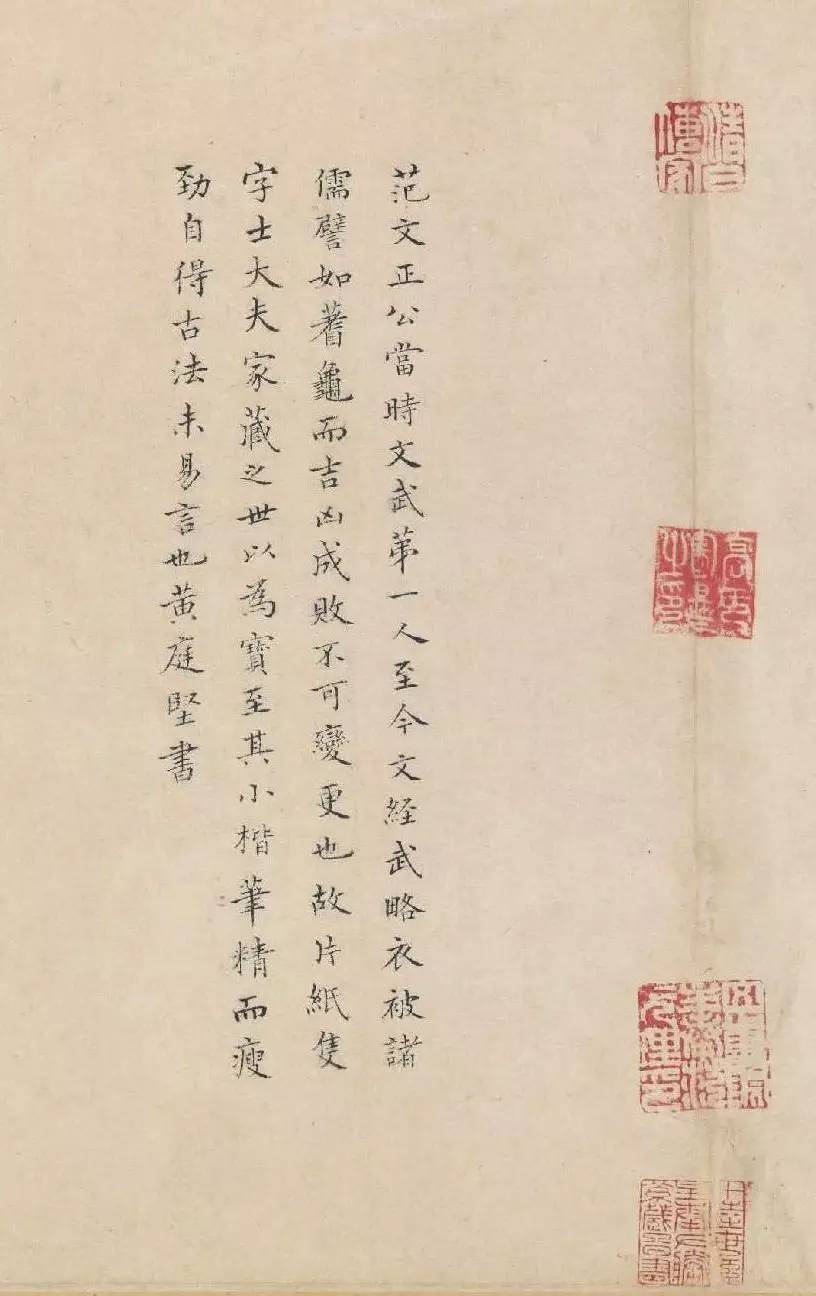 范文正公當時文武第一人至今文經武略衣被諸
儒譬如蓍龜而吉凶成敗不可變更也故片紙隻
字士大夫家藏之世以為寶至其小楷筆精而瘦
勁自得古法未易言也黄庭堅書